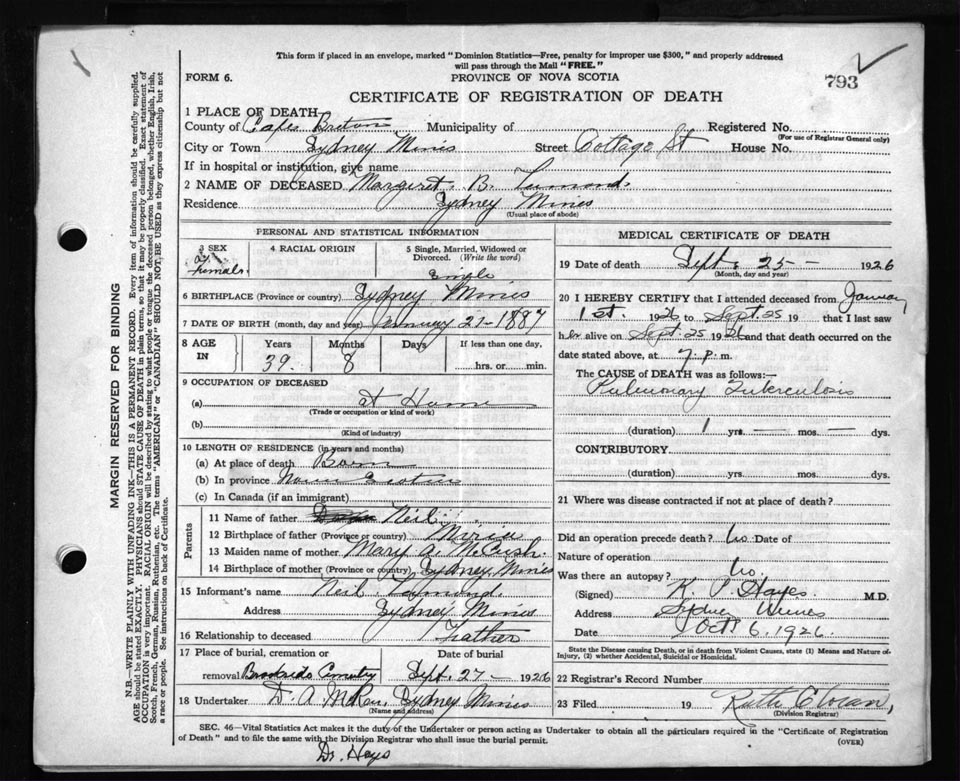 This form if placed in an envelope, marked "Dominion Statistics—Free, penalty for improper use $300," and properly addressed
will pass through the Mail "FREE."
FORM 6.
PROVINCE OF NOVA SCOTIA
793
CERTIFICATE OF REGISTRATION OF DEATH
1 PLACE OF DEATH—
County of Cape Breton Municipality of Registered No.
(For use of Registrar General only)
City or Town Sydney Mines Street Cottage St House No.
If in hospital or institution, give name
2 NAME OF DECEASED Margaret. B.
Residence Sydney Mines
(Usual place of abode)
PERSONAL AND STATISTICAL INFORMATION
3 SEX
Female
4 RACIAL ORIGIN
5 Single, Married, Widowed or
Divorced. (Write the word)
Single
6 BIRTHPLACE (Province or country) Sydney Mines
7 DATE OF BIRTH (month, day and year) January 21-1887
8 AGE IN
Years Months Days If less than one day,
39. 8 hrs. or min.
9 OCCUPATION OF DECEASED
(a) at Home
(Trade or occupation or kind of work)
(b)
(Kind of industry)
10 LENGTH OF RESIDENCE (in years and months)
(a) At place of death Born
(b) In province Nova Scotia
(c) In Canada (if an immigrant)
Parents
11 Name of father Neil
12 Birthplace of father (Province or country)
13 Maiden name of mother Mary A.
14 Birthplace of mother (Province or country) Sydney Mines
15 Informant's name Neil
Address Sydney Mines
16 Relationship to deceased Father
17 Place of burial, cremation or Date of burial
removal Sept. 27- 1926
18 Undertaker D. A. Sydney Mines
(Name and address)
MEDICAL CERTIFICATE OF DEATH
19 Date of death Sept. 25- 1926
(Month, day and year)
20 I HEREBY CERTIFY that I attended deceased from January
1st. 1926 to Sept. 25 19 that I last saw
her alive on Sept. 25 1926 and that death occurred on the
date stated above, at 7. P. m.
The CAUSE of DEATH was as follows:—
Pulmonary Tuberculosis
(duration) 1 yrs. — mos. — dys.
CONTRIBUTORY.
(duration) yrs. mos. dys.
21 Where was disease contracted if not at place of death?
Did an operation precede death? No. Date of
Nature of operation
Was there an autopsy? No.
(Signed) K. P. Hayes M.D.
Address Sydney Mines
Date Oct 6. 1926.
State the Disease causing Death, or in death from Violent Causes, state (1) Means and Nature of
Injury, (2) whether Accidental, Suicidal or Homicidal.
22 Registrar's Record Number
23 Filed 19 Ruth
(Division Registrar)
SEC. 46—Vital Statistics Act makes it the duty of the Undertaker or person acting as Undertaker to obtain all the particulars required in the "Certificate of Registration
of Death" and to file the same with the Division Registrar who shall issue the burial permit.
(OVER)
Dr. Hays
MARGIN RESERVED FOR BINDING
N.B.—WRITE PLAINLY WITH UNFADING INK—THIS IS A PERMANENT RECORD. Every item of information should be carefully supplied.
AGE should be stated EXACTLY. PHYSICIANS should STATE CAUSE OF DEATH in plain terms, so that it may be properly classified. Exact statement of
OCCUPATION is very important. RACIAL ORIGIN will be described by stating to what people or tongue the deceased person belonged, whether English, Irish,
Scotch, French, German, Russian, Ruthenian, etc. The terms "AMERICAN" or "CANADIAN" SHOULD NOT BE USED as they express citizenship but not
a race or people. See instructions on back of Certificate.